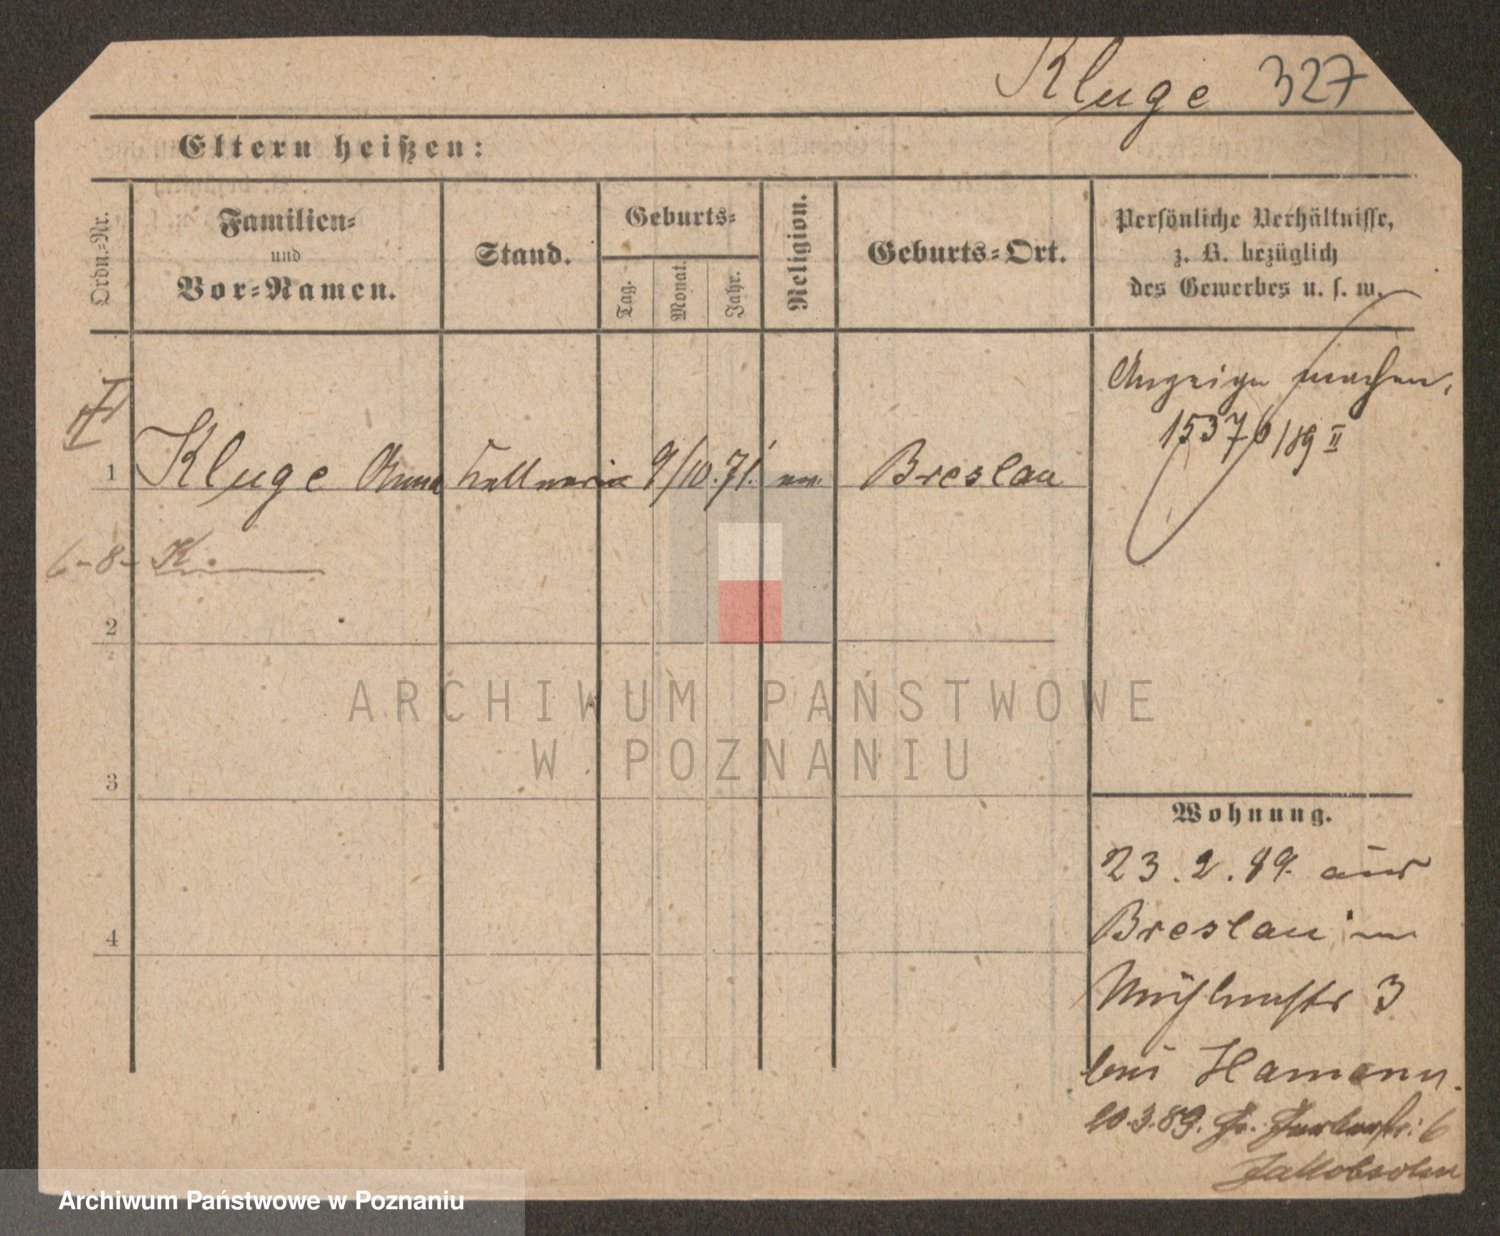 Kluge 327
Eltern heißen:
Ordn.-Nr.
Familien-
und
Vor-Namen.
Stand.
Geburts-
Tag.
Monat.
Jahr.
Religion.
Geburts-Ort.
Persönliche Verhältnisse,
z. B. bezüglich
des Gewerbes u. s. w.
Anzeige machen.
15376/89 II
1 Kluge Anna Kellnerin 9/10. 71. ev. Breslau
6-8- K.
2
3
4
ARCHIWUM PAŃSTWOWE
W POZNANIU
Wohnung.
23.2.89. aus
Breslau in
Mühlenstr 3
bei Hamann.
10.3.89. Gr. Gerberstr: 6
Jakobsohn
Archiwum Państwowe w Poznaniu